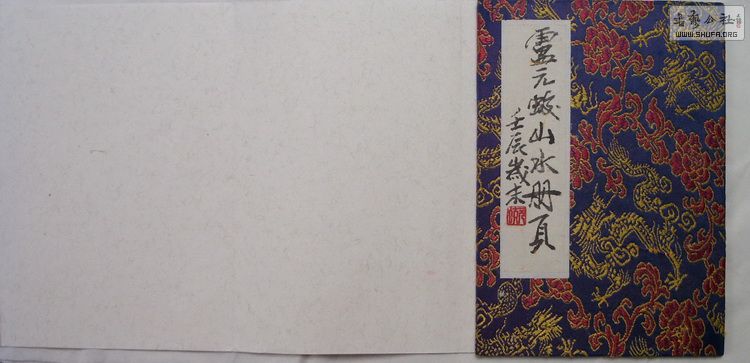 元山水册頁
壬辰歲末
公社
WWW.SHUFA.ORG